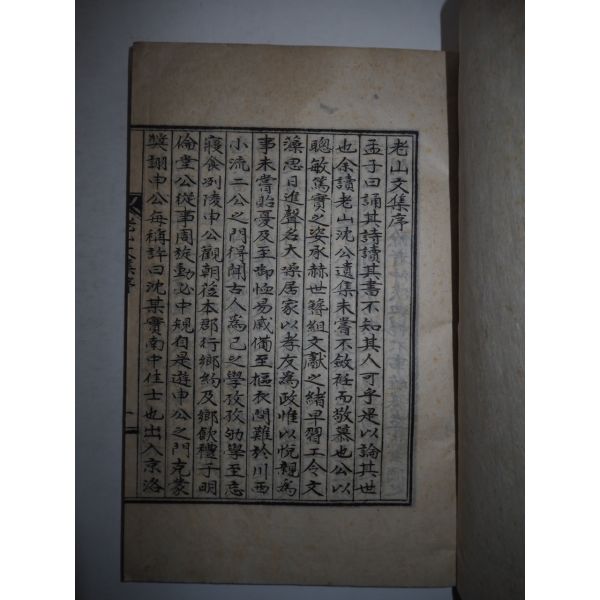 老山文集序
孟子曰誦其詩讀其書不知其人可乎是以論其世
也余讀老山沈公遺集未嘗不斂衽而敬慕也公以
聰敏篤實之姿承赫世簪組文獻之緖早習工令文
藻思日進聲名大噪居家以孝友爲政惟以悅親爲
事未嘗貽憂及至御恤易戚備至樞衣問難於川西
小流二公之門得聞古人爲己之學孜孜勿學至忘
寢食冽陵申公觀朝莅本郡行鄉約及鄉飮禮于明
倫堂公從事周旋動必中規自是遊申公之門克蒙
奬詡申公每稱許曰沈某實南中佳士也出入京洛
老山文集序
一